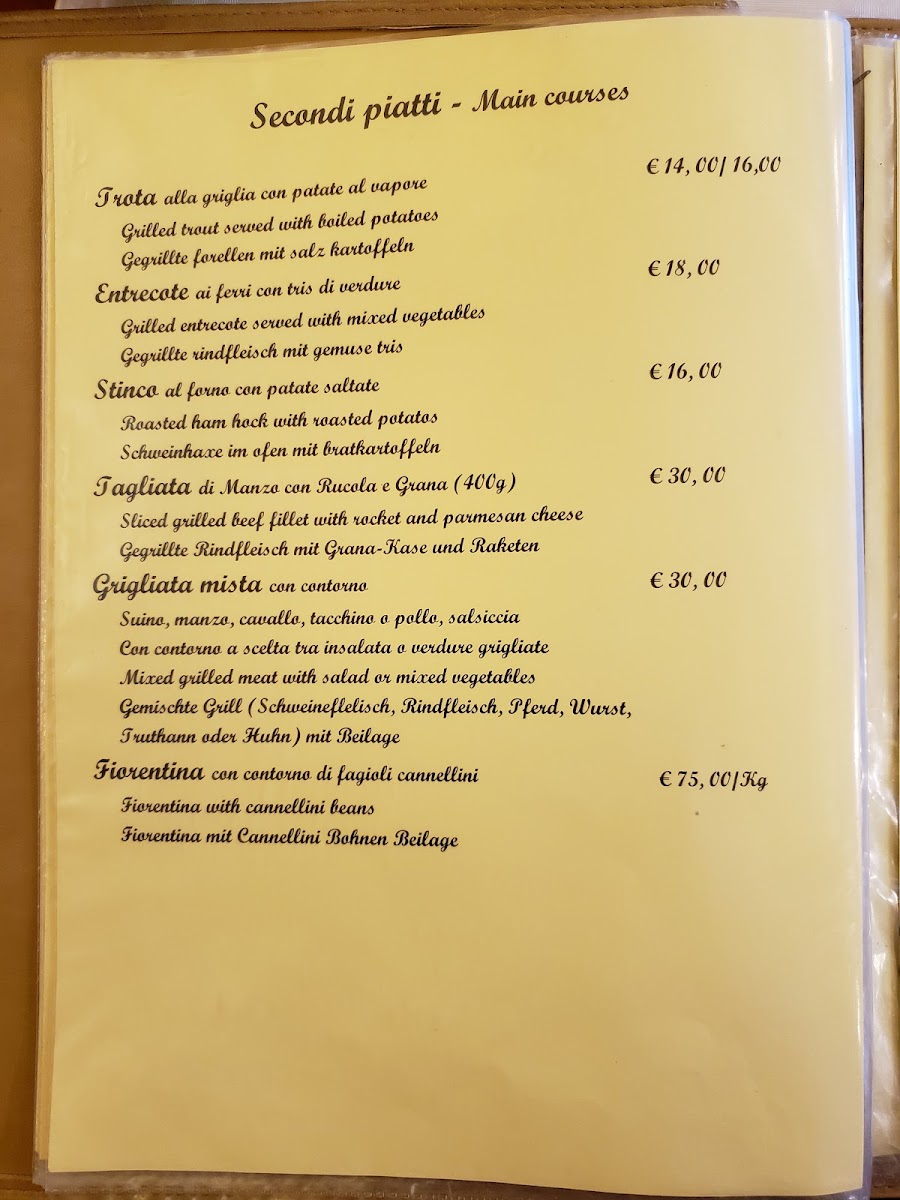 Secondi piatti - Main courses
Trota alla griglia con patate al vapore € 14,00/ 16,00
Grilled trout served with boiled potatoes
Gegrillte forellen mit salz kartoffeln
Entrecote ai ferri con tris di verdure € 18,00
Grilled entrecote served with mixed vegetables
Gegrillte rindfleisch mit gemuse tris
Stinco al forno con patate saltate € 16,00
Roasted ham hock with roasted potatos
Schweinhaxe im ofen mit bratkartoffeln
Tagliata di Manzo con Rucola e Grana (400g) € 30,00
Sliced grilled beef fillet with rocket and parmesan cheese
Gegrillte Rindfleisch mit Grana-Kase und Raketen
Grigliata mista con contorno € 30,00
Suino, manzo, cavallo, tacchino o pollo, salsiccia
Con contorno a scelta tra insalata o verdure grigliate
Mixed grilled meat with salad or mixed vegetables
Gemischte Grill (Schweineflelisch, Rindfleisch, Pferd, Wurst,
Truthann oder Huhn) mit Beilage
Fiorentina con contorno di fagioli cannellini € 75,00/Kg
Fiorentina with cannellini beans
Fiorentina mit Cannellini Bohnen Beilage